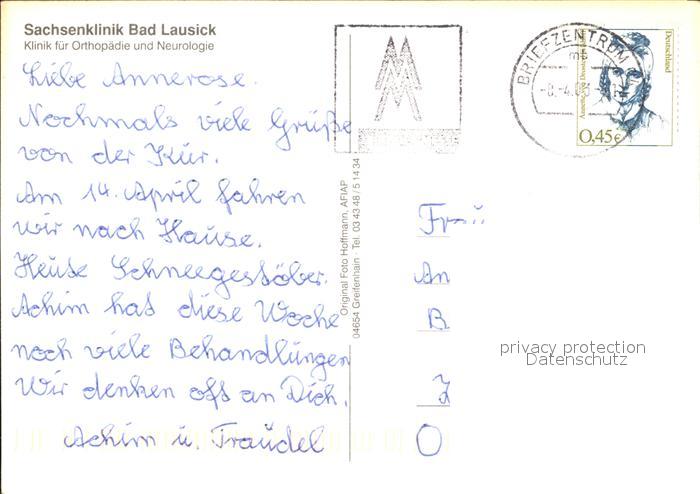 Sachsenklinik Bad Lausick
Klinik für Orthopädie und Neurologie
Liebe Annerose.
Nochmals viele Grüße
von der Kur.
Am 14. April fahren
wir nach Hause.
Heute Schneegestöber.
Achim hat diese Woche
noch viele Behandlungen
Wir denken oft an Dich.
Achim u. Traudel
Original Foto Hoffmann, AFIAP
04654 Greifenhain · Tel. 03 43 48 / 5 14 34
BRIEFZENTRUM
mb
Deutschland
0,45€
Frau
An
B
privacy protection
Datenschutz